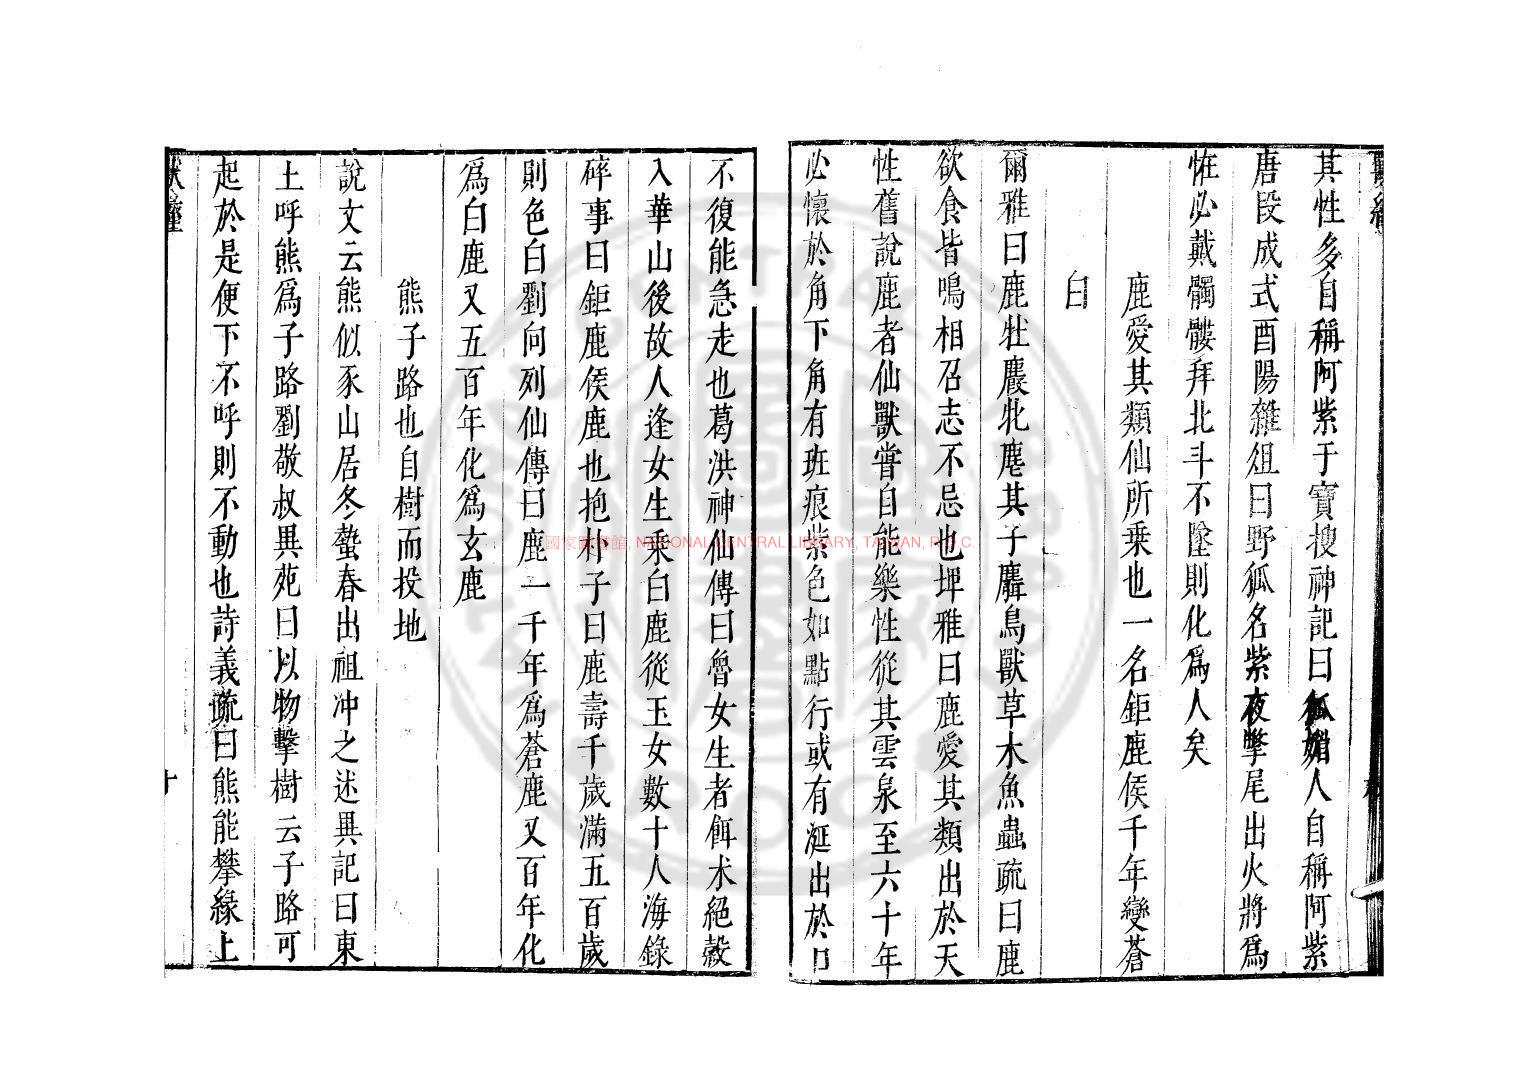 其性多自稱阿紫于寶搜神記曰狐媚人自稱阿紫
唐段成式酉陽雜俎曰野狐名紫夜擊尾出火將爲
恠必戴髑髏拜北斗不墜則化爲人矣
鹿愛其類仙所乗也一名鉅鹿侯千年變蒼
白
爾雅曰鹿牡麚牝麀其子麛鳥獸草木魚蟲疏曰鹿
欲食皆鳴相召志不忌也埤雅曰鹿愛其類出於天
性舊說鹿者仙獸嘗自能樂性從其雲泉至六十年
必懷於角下角有班痕紫色如點行或有涎出於口
不復能急走也葛洪神仙傳曰魯女生者餌术絕穀
入華山後故人逢女生乘白鹿從玉女數十人海錄
碎事曰鉅鹿侯鹿也抱朴子曰鹿壽千歲滿五百歲
則色白劉向列仙傳曰鹿一千年爲蒼鹿又百年化
爲白鹿又五百年化爲玄鹿
熊子路也自樹而投地
說文云熊似豕山居冬蟄春出祖冲之述異記曰東
土呼熊爲子路劉敬叔異苑曰以物擊樹云子路可
起於是便下不呼則不動也詩義疏曰熊能攀緣上
獸經
十
國家圖書館, NATIONAL CENTRAL LIBRARY, TAIWAN, R.O.C.